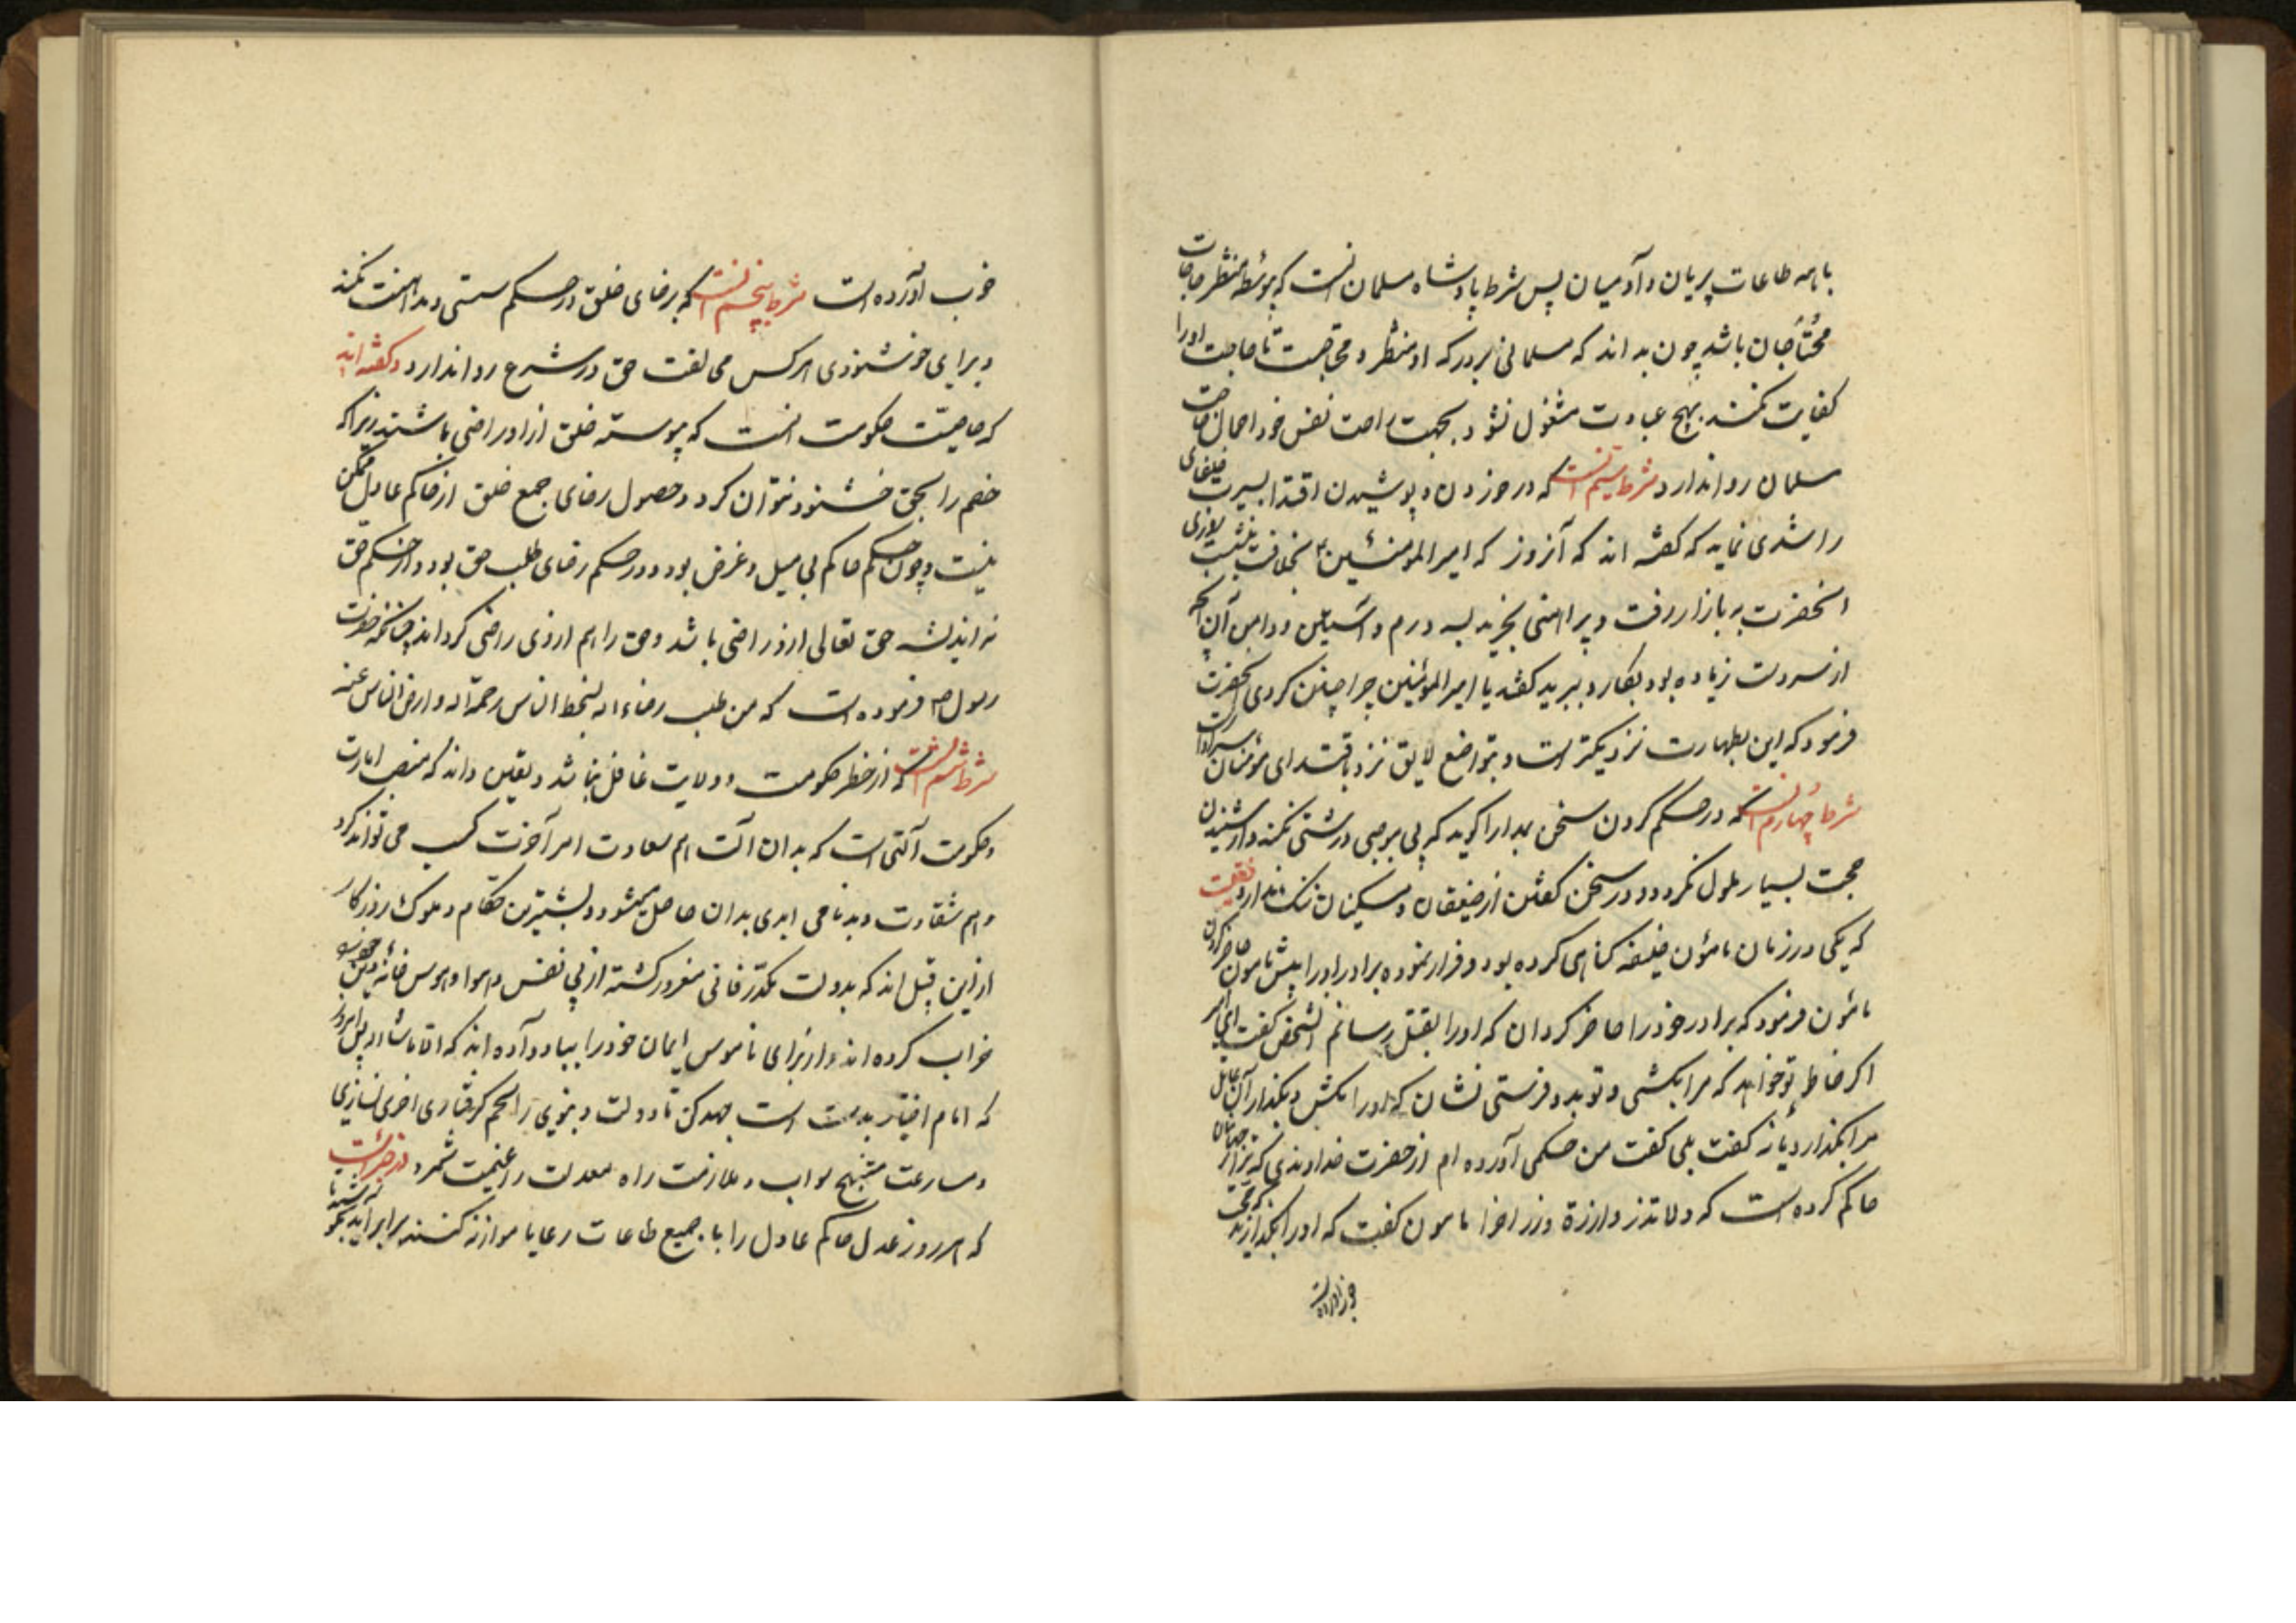 با همه طاعات پریان و آدمیان پس شرط پادشاه مسلمان آنست که پیوسته منتظر حاجات
محتاجان باشد چون بداند که مسلمانی بر درکه او منتظر و محتاجست تا حاجت او را
کفایت نکند بهیچ عبادت مشغول نشود و بجهت راحت نفس خود اهمال حاجت
مسلمان روا ندارد شرط سیم آنست که در خوردن و پوشیدن اقتدا بسیرت خلفای
راشدی نماید که کفته اند که آنروز که امیرالمومنین بخلافت بنشست
انحضرت به بازار رفت و پیراهنی بخرید بسه درم و آستین و دامن آن آنچه
از سردست زیاده بود بکارد ببرید کفتند یا امیرالمؤمنین چرا چنین کردی انحضرت
فرمود که این بطهارت نزدیکتر است و بتواضع لایق تر و باقتدای مؤمنان سزاوارتر
شرط چهارم آنست که در حکم کردن سخن بمدارا کوید که بی موجبی درشتی نکند و از شنیدن
حجت بسیار ملول نکردد و در سخن کفتن از ضعیفان و مسکینان ننک ندارد نقلست
که یکی در زمان مامون خلیفه کناهی کرده بود و فرار نموده برادر او را پیش مامون حاضر کردن
مامون فرمود که برادر خود را حاضر کردان که او را بقتل رسانم آنشخص کفت ای امیر
اکر عامل تو خواهد که مرا بکشی و تو بدو فرستی نشان که او را مکش و بکذار آن عامل
مرا بکذارد یا نه کفت بلی کفت من حکمی آورده ام از حضرت خداوندی که ترا بر جهانیان
حاکم کرده است که ولا تزر وازرة وزر اخرا مامون کفت که او را بکذارید که حجت
خوب آورده است
خوب آورده است شرط پنجم آنست که برضای خلق در حکم سستی و مداهنت نکند
و برای خوشنودی هرکس مخالفت حق در شرع روا ندارد و کفته اند
که خاصیت حکومت آنست که پیوسته خلق از او راضی باشند زیرا که
خصم را بحق خشنود نتوان کرد و حصول رضای جمع خلق از حاکم عادل ممکن
نیست و چون حکم حاکم بی میل و غرض بود و در حکم رضای طلب حق بود و از حکم حق
نه اندیشد حق تعالی ازو راضی باشد و خلق را هم ازوی راضی کرداند چنانکه حضرت
رسول ص فرموده است که من طلب رضاء الله بسخط الناس رحمة الله و ارض الناس عنه
شرط ششم آنست که از خطر حکومت و ولایت غافل نباشد و یقین داند که منصب امارت
و حکومت آلتی است که بدان آلت هم سعادت امر آخرت کسب می تواند کرد
و هم شقاوت و بدنامی ابدی بدان حاصل میشود و بیشترین حکام و ملوک روزکار
از این قبیل اند که بدولت مکدر فانی مغرور کشته از پی نفس و هوا و هوس خانه دین خود
خراب کرده اند و از برای ناموس ایمان خود را بباد داده اند که
جهد کن تا دولت دنیوی را
و مسارعت منهج صواب و ملازمت راه معدلت را غنیمت شمرد و در خبر است
که هر روز عدل حاکم عادل را با جمیع طاعات رعایا موازنه کنند برابر آید